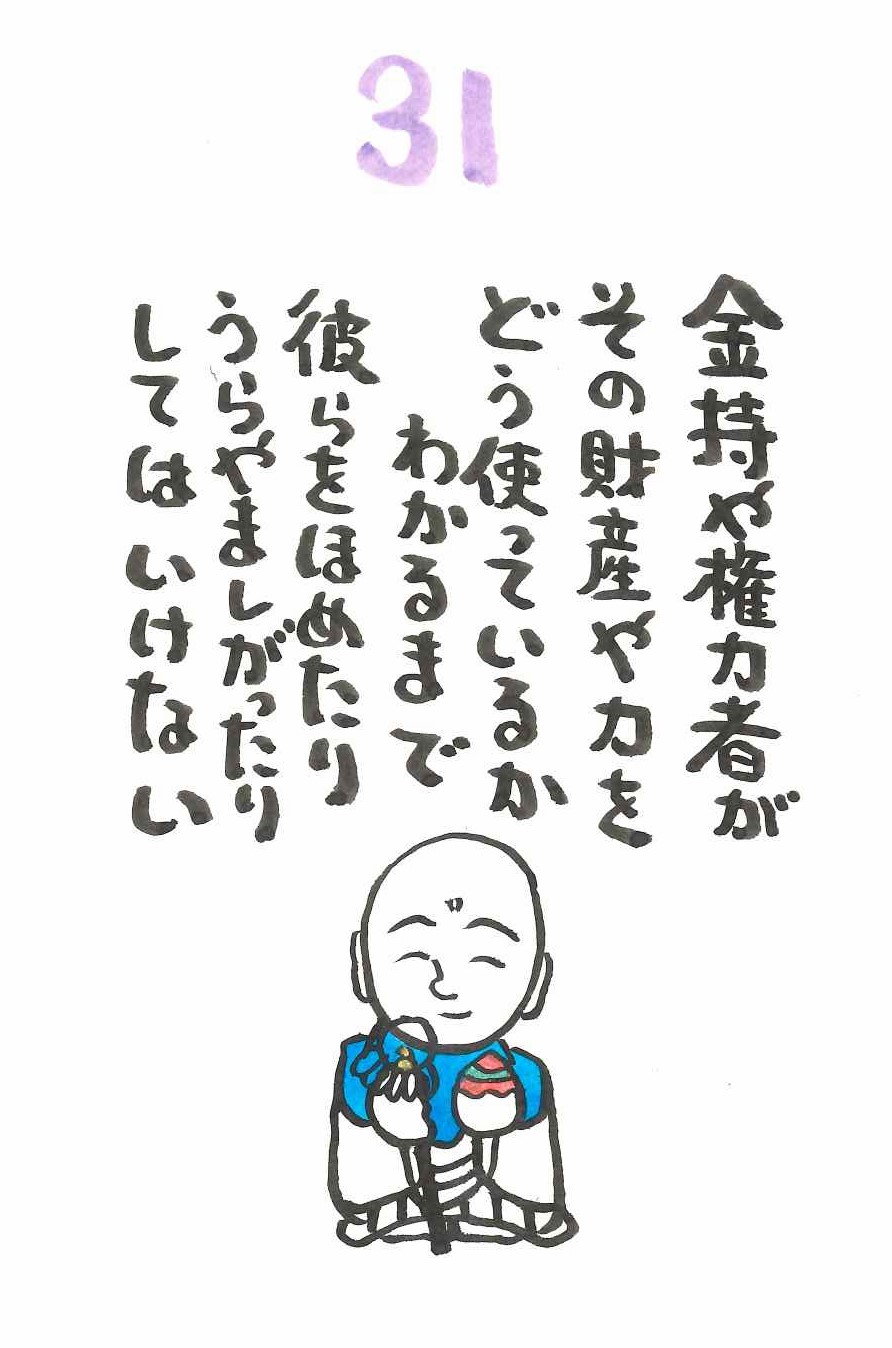 31
金持や権力者が
その財産や力を
どう使っているか
わかるまで
彼らをほめたり
うらやましがったり
してはいけない